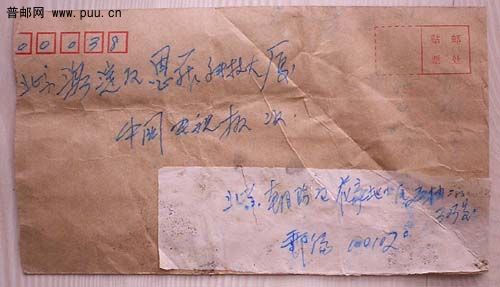 普邮网
www.puu.cn
00038
贴 邮
票 处
北京 科技大厦
中国电视报 收
北京 朝阳区 花家地小区
邮编 100102